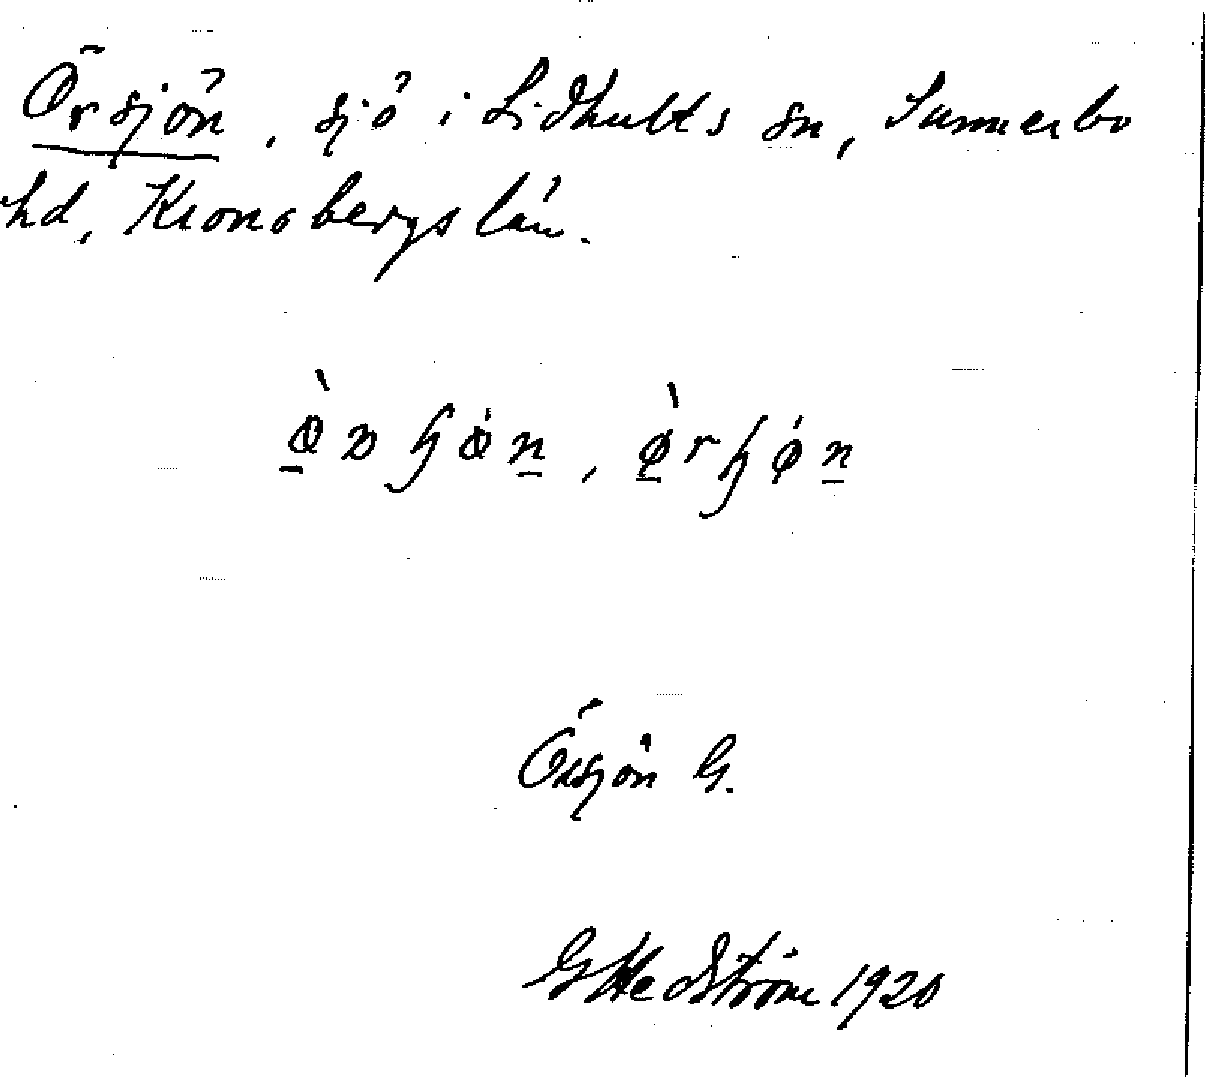 Örsjön, sjö i Lidhults sn, Sunnerbo
hd, Kronobergs län.
Örsjön G.
G Hedström 1920